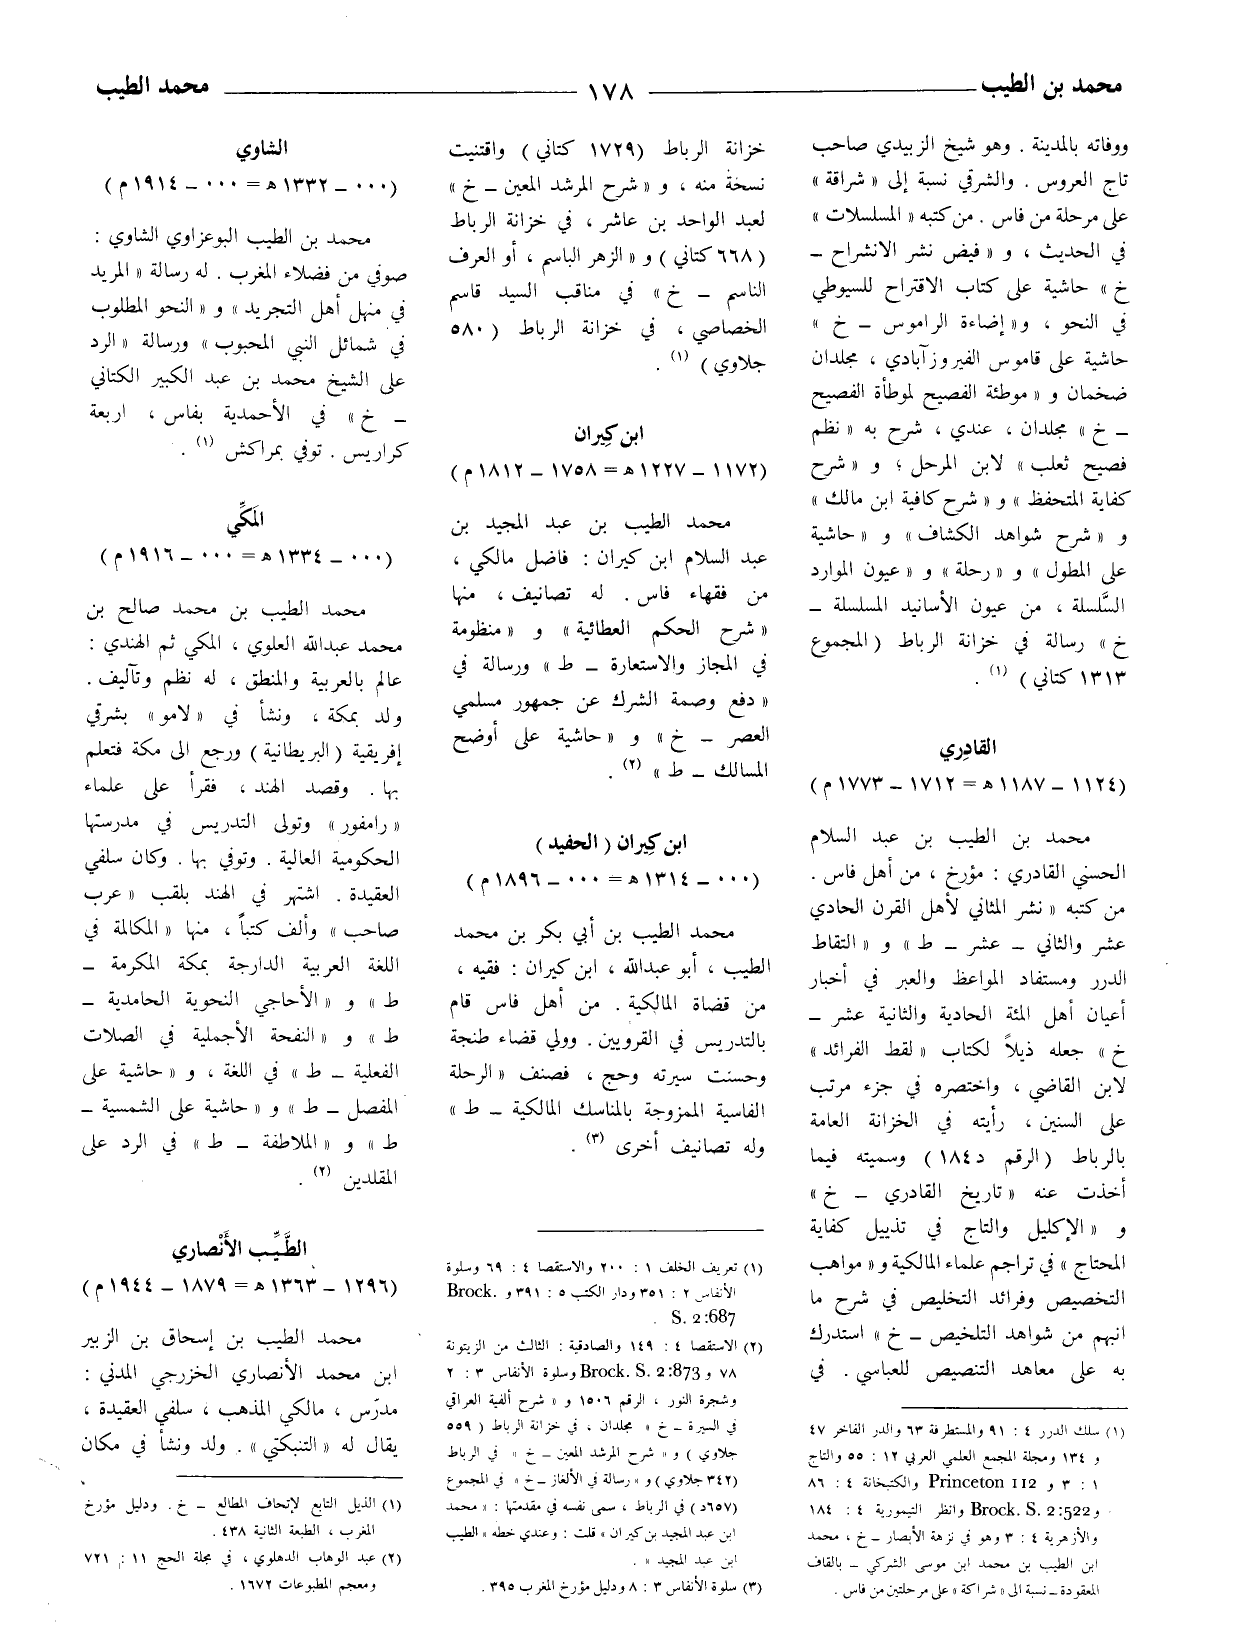 محمد بن الطيب ١٧٨ محمد الطيب
ووفاته بالمدينة . وهو شيخ الزبيدي صاحب
تاج العروس . والشرقي نسبة إلى « شراقة »
على مرحلة من فاس . من كتبه « المسلسلات »
في الحديث ، و « فيض نشر الانشراح ــ
خ » حاشية على كتاب الاقتراح للسيوطي
في النحو ، و« إضاءة الراموس ــ خ »
حاشية على قاموس الفيروزآبادي ، مجلدان
ضخمان و « موطئة الفصيح لموطأة الفصيح
ــ خ » مجلدان ، عندي ، شرح به « نظم
فصيح ثعلب » لابن المرحل ؛ و « شرح
كفاية المتحفظ » و « شرح كافية ابن مالك »
و « شرح شواهد الكشاف » و « حاشية
على المطول » و « رحلة » و « عيون الموارد
السَّلسلة ، من عيون الأسانيد المسلسلة ــ
خ » رسالة في خزانة الرباط ( المجموع
١٣١٣ كتاني ) (١) .
القادِري
(١١٢٤ ــ ١١٨٧ هـ = ١٧١٢ ــ ١٧٧٣ م )
محمد بن الطيب بن عبد السلام
الحسني القادري : مؤرخ ، من أهل فاس .
من كتبه « نشر المثاني لأهل القرن الحادي
عشر والثاني ــ عشر ــ ط » و « التقاط
الدرر ومستفاد المواعظ والعبر في أخبار
أعيان أهل المئة الحادية والثانية عشر ــ
خ » جعله ذيلاً لكتاب « لقط الفرائد »
لابن القاضي ، واختصره في جزء مرتب
على السنين ، رأيته في الخزانة العامة
بالرباط ( الرقم د١٨٤ ) وسميته فيما
أخذت عنه « تاريخ القادري ــ خ »
و « الإكليل والتاج في تذييل كفاية
المحتاج » في تراجم علماء المالكية و « مواهب
التخصيص وفرائد التخليص في شرح ما
انبهم من شواهد التلخيص ــ خ » استدرك
به على معاهد التنصيص للعباسي . في
(١) سلك الدرر ٤ : ٩١ والمستطرفة ٦٣ والدر الفاخر ٤٧
و ١٣٤ ومجلة المجمع العلمي العربي ١٢ : ٥٥ والتاج
١ : ٣ و Princeton 112 والكتبخانة ٤ : ٨٦
و Brock. S. 2:522 وانظر التيمورية ٤ : ١٨٤
والأزهرية ٤ : ٣ وهو في نزهة الأبصار ــ خ ، محمد
ابن الطيب بن محمد ابن موسى الشركي ــ بالقاف
المعقودة ــ نسبة الى « شراكة » على مرحلتين من فاس .
خزانة الرباط (١٧٢٩ كتاني ) واقتنيت
نسخة منه ، و « شرح المرشد المعين ــ خ »
لعبد الواحد بن عاشر ، في خزانة الرباط
( ٦٦٨ كتاني ) و « الزهر الباسم ، أو العرف
الناسم ــ خ » في مناقب السيد قاسم
الخصاصي ، في خزانة الرباط ( ٥٨٠
جلاوي ) (١) .
ابن كِيران
(١١٧٢ ــ ١٢٢٧ هـ = ١٧٥٨ ــ ١٨١٢ م )
محمد الطيب بن عبد المجيد بن
عبد السلام ابن كيران : فاضل مالكي ،
من فقهاء فاس . له تصانيف ، منها
« شرح الحكم العطائية » و « منظومة
في المجاز والاستعارة ــ ط » ورسالة في
« دفع وصمة الشرك عن جمهور مسلمي
العصر ــ خ » و « حاشية على أوضح
المسالك ــ ط » (٢) .
ابن كِيران ( الحفيد )
(٠٠٠ ــ ١٣١٤ هـ = ٠٠٠ ــ ١٨٩٦ م )
محمد الطيب بن أبي بكر بن محمد
الطيب ، أبو عبدالله ، ابن كيران : فقيه ،
من قضاة المالكية . من أهل فاس قام
بالتدريس في القرويين . وولي قضاء طنجة
وحسنت سيرته وحج ، فصنف « الرحلة
الفاسية الممزوجة بالمناسك المالكية ــ ط »
وله تصانيف أخرى (٣) .
(١) تعريف الخلف ١ : ٢٠٠ والاستقصا ٤ : ٦٩ وسلوة
الأنفاس ٢ : ٣٥١ ودار الكتب ٥ : ٣٩١ و Brock.
S. 2:687 .
(٢) الاستقصا ٤ : ١٤٩ والصادقية : الثالث من الزيتونة
٧٨ و Brock. S. 2:873 وسلوة الأنفاس ٣ : ٢
وشجرة النور ، الرقم ١٥٠٦ و « شرح ألفية العراقي
في السيرة ــ خ » مجلدان ، في خزانة الرباط ( ٥٥٩
جلاوي ) و « شرح المرشد المعين ــ خ » في الرباط
(٣٤٢ جلاوي ) و « رسالة في الألغاز ــ خ » في المجموع
(٦٥٧د ) في الرباط ، سمى نفسه في مقدمتها : « محمد
ابن عبد المجيد بن كيران » قلت : وعندي خطه « الطيب
ابن عبد المجيد » .
(٣) سلوة الأنفاس ٣ : ٨ ودليل مؤرخ المغرب ٣٩٥ .
الشاوي
(٠٠٠ ــ ١٣٣٢ هـ = ٠٠٠ ــ ١٩١٤ م )
محمد بن الطيب البوعزاوي الشاوي :
صوفي من فضلاء المغرب . له رسالة « المريد
في منهل أهل التجريد » و « النحو المطلوب
في شمائل النبي المحبوب » ورسالة « الرد
على الشيخ محمد بن عبد الكبير الكتاني
ــ خ » في الأحمدية بفاس ، اربعة
كراريس . توفي بمراكش (١) .
المَكِّي
(٠٠٠ ــ ١٣٣٤ هـ = ٠٠٠ ــ ١٩١٦ م )
محمد الطيب بن محمد صالح بن
محمد عبدالله العلوي ، المكي ثم الهندي :
عالم بالعربية والمنطق ، له نظم وتآليف .
ولد بمكة ، ونشأ في « لامو » بشرقي
إفريقية ( البريطانية ) ورجع الى مكة فتعلم
بها . وقصد الهند ، فقرأ على علماء
« رامفور » وتولى التدريس في مدرستها
الحكومية العالية . وتوفي بها . وكان سلفي
العقيدة . اشتهر في الهند بلقب « عرب
صاحب » وألف كتباً ، منها « المكالمة في
اللغة العربية الدارجة بمكة المكرمة ــ
ط » و « الأحاجي النحوية الحامدية ــ
ط » و « النفحة الأجملية في الصلات
الفعلية ــ ط » في اللغة ، و « حاشية على
المفصل ــ ط » و « حاشية على الشمسية ــ
ط » و « الملاطفة ــ ط » في الرد على
المقلدين (٢) .
الطَّيِّب الأَنْصاري
(١٢٩٦ ــ ١٣٦٣ هـ = ١٨٧٩ ــ ١٩٤٤ م )
محمد الطيب بن إسحاق بن الزبير
ابن محمد الأنصاري الخزرجي المدني :
مدرّس ، مالكي المذهب ، سلفي العقيدة ،
يقال له « التنبكتي » . ولد ونشأ في مكان
(١) الذيل التابع لإتحاف المطالع ــ خ . ودليل مؤرخ
المغرب ، الطبعة الثانية ٤٣٨ .
(٢) عبد الوهاب الدهلوي ، في مجلة الحج ١١ : ٧٢١
ومعجم المطبوعات ١٦٧٢ .